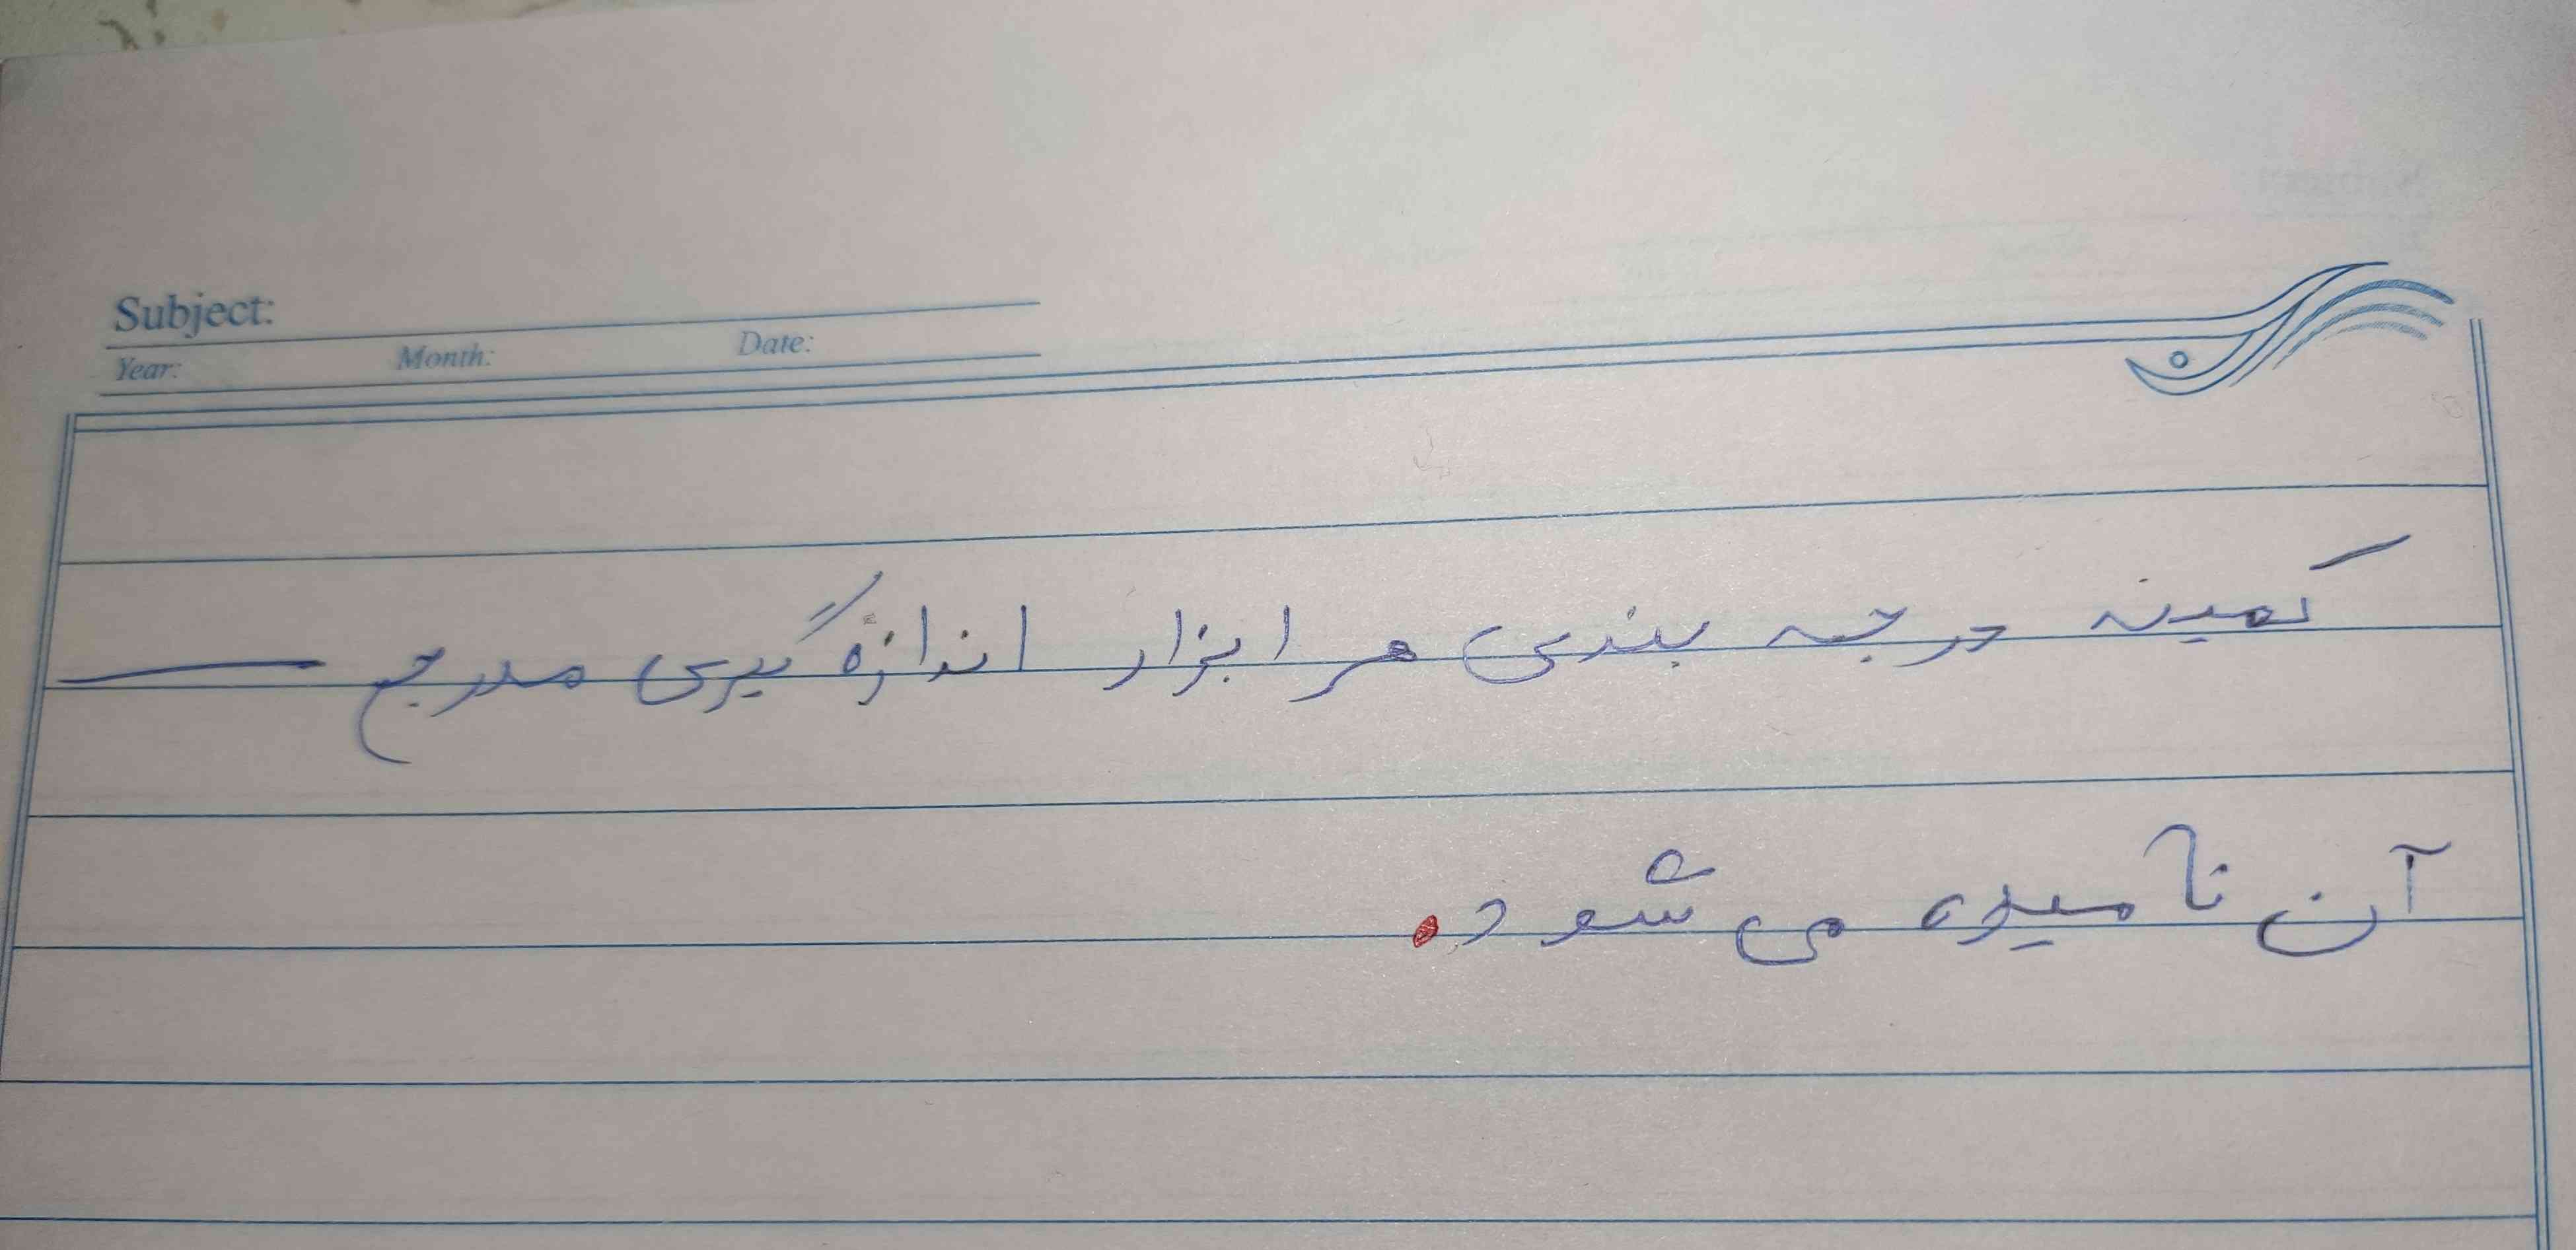 Subject:
Year: Month: Date:
کمینه درجه بندی هر ابزار اندازه گیری مدرج ــــــ
آن نامیده می شود.